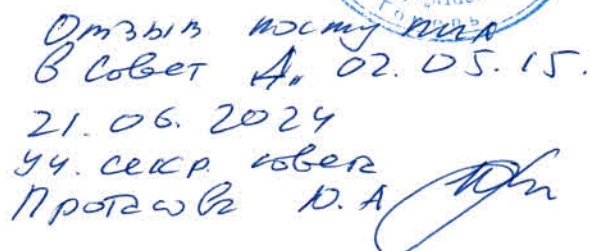 Отзыв поступил
в совет Д. 02.05.15.
21.06.2024
уч. секр. совета
Протасова Ю.А